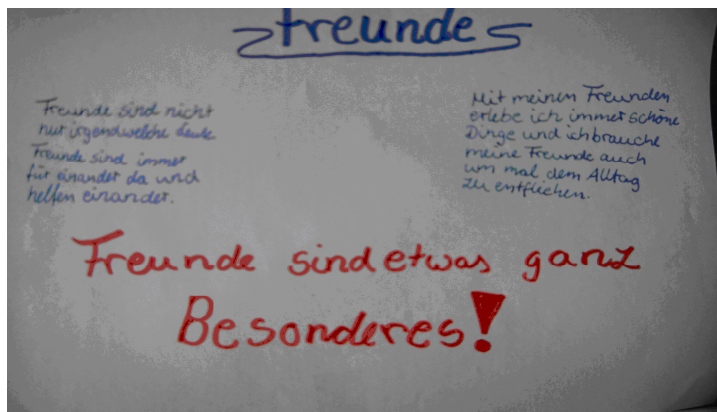 Freunde
Freunde sind nicht
nur irgendwelche Leute
Freunde sind immer
für einander da und
helfen einander.
Mit meinen Freunden
erlebe ich immer schöne
Dinge und ich brauche
meine Freunde auch
um mal dem Alltag
zu entfliehen.
Freunde sind etwas ganz
Besonderes!